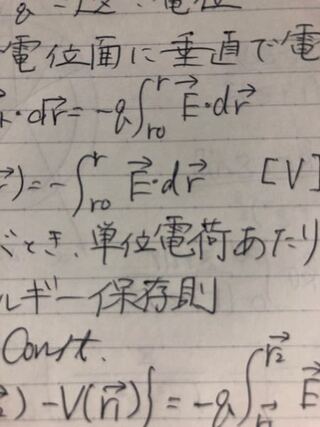 電位面に垂直で電
・d\vec{r} = -q∫_{r0}^{\vec{r}} \vec{E}・d\vec{r}
) = -∫_{r0}^{r} \vec{E}・d\vec{r} [V]
とき、単位電荷あたり
ルギー保存則
Const.
) - V(\vec{r_1})} = -q∫_{\vec{r_1}}^{\vec{r_2}} \vec{E}